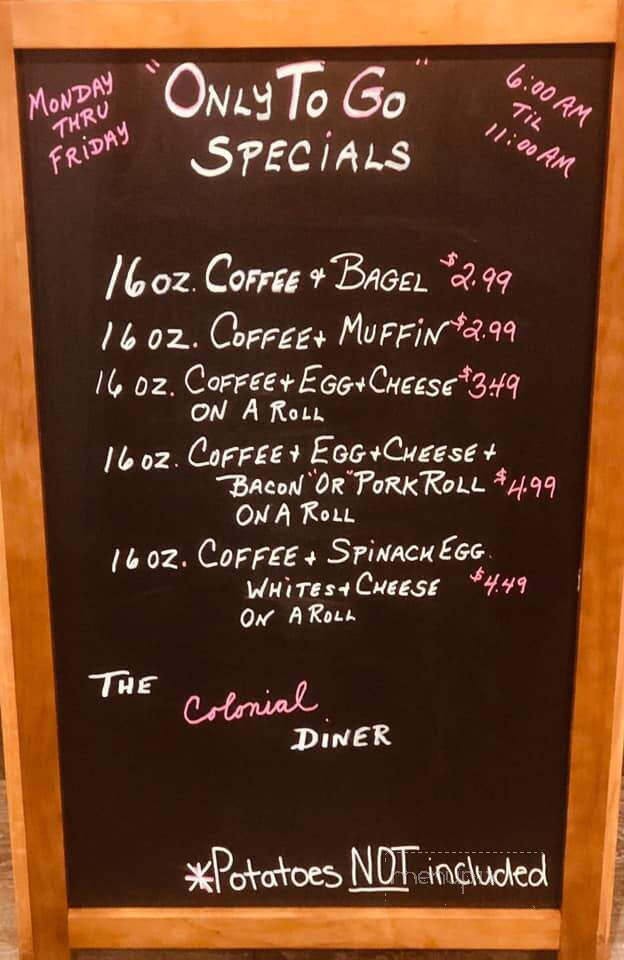 MONDAY
THRU
FRIDAY
"ONLY TO GO"
SPECIALS
6:00 AM
TIL
11:00 AM
16 OZ. COFFEE & BAGEL $2.99
16 OZ. COFFEE+ MUFFIN $2.99
16 OZ. COFFEE+EGG+CHEESE $3.49
ON A ROLL
16 OZ. COFFEE+ EGG+CHEESE+
BACON "OR" PORK ROLL $4.99
ON A ROLL
16 OZ. COFFEE+ SPINACH EGG
WHITES+ CHEESE $4.49
ON A ROLL
THE
Colonial
DINER
*Potatoes NOT included